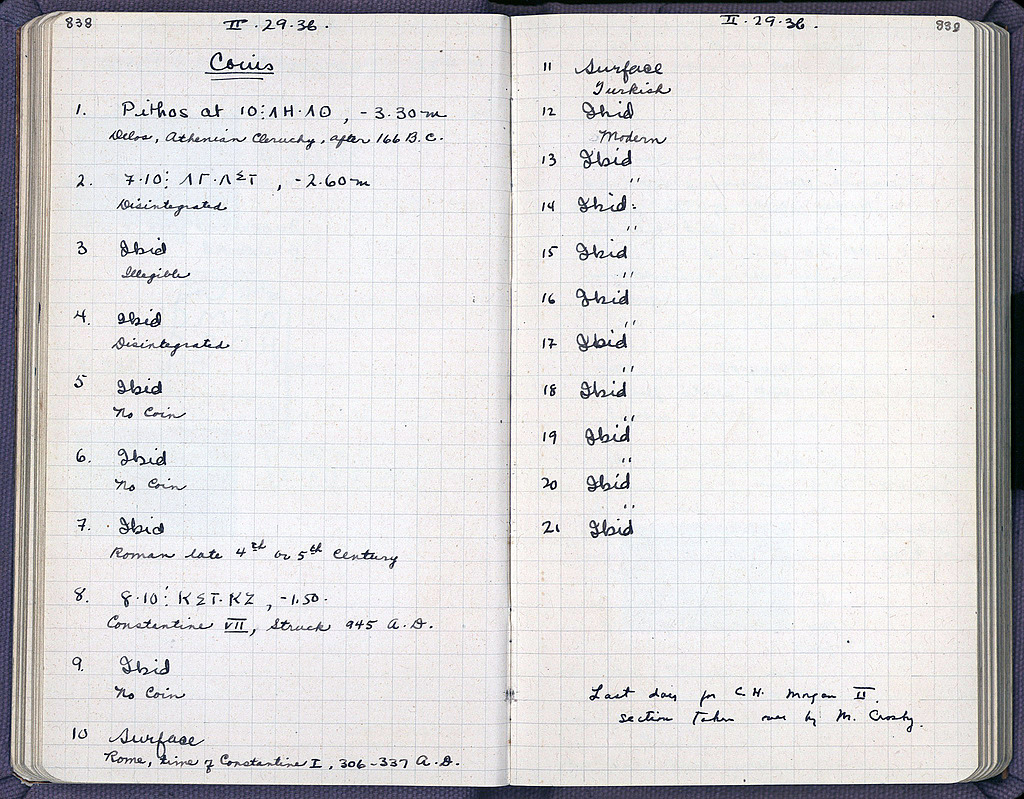 838
II · 29 · 36 ·
Coins
1. Pithos at 10:ΛΗ·ΛΘ, -3.30 m
Delos, Athenian Cleruchy, after 166 B.C.
2. 7·10: ΛΓ·ΛΣΤ, -2.60 m
Disintegrated
3 Ibid
Illegible
4. Ibid
Disintegrated
5 Ibid
No Coin
6. Ibid
No Coin
7. Ibid
Roman late 4th or 5th Century
8. 8·10: ΚΣΤ·ΚΖ, -1.50·
Constantine VII, Struck 945 A.D.
9. Ibid
No Coin
10 Surface
Rome, time of Constantine I, 306-337 A.D.
II · 29 · 36 ·
839
11 Surface
Turkish
12 Ibid
Modern
13 Ibid
"
14 Ibid:
"
15 Ibid
"
16 Ibid
"
17 Ibid
"
18 Ibid
"
19 Ibid
"
20 Ibid
"
21 Ibid
Last day for C.H. Morgan II.
section taken over by M. Crosby.